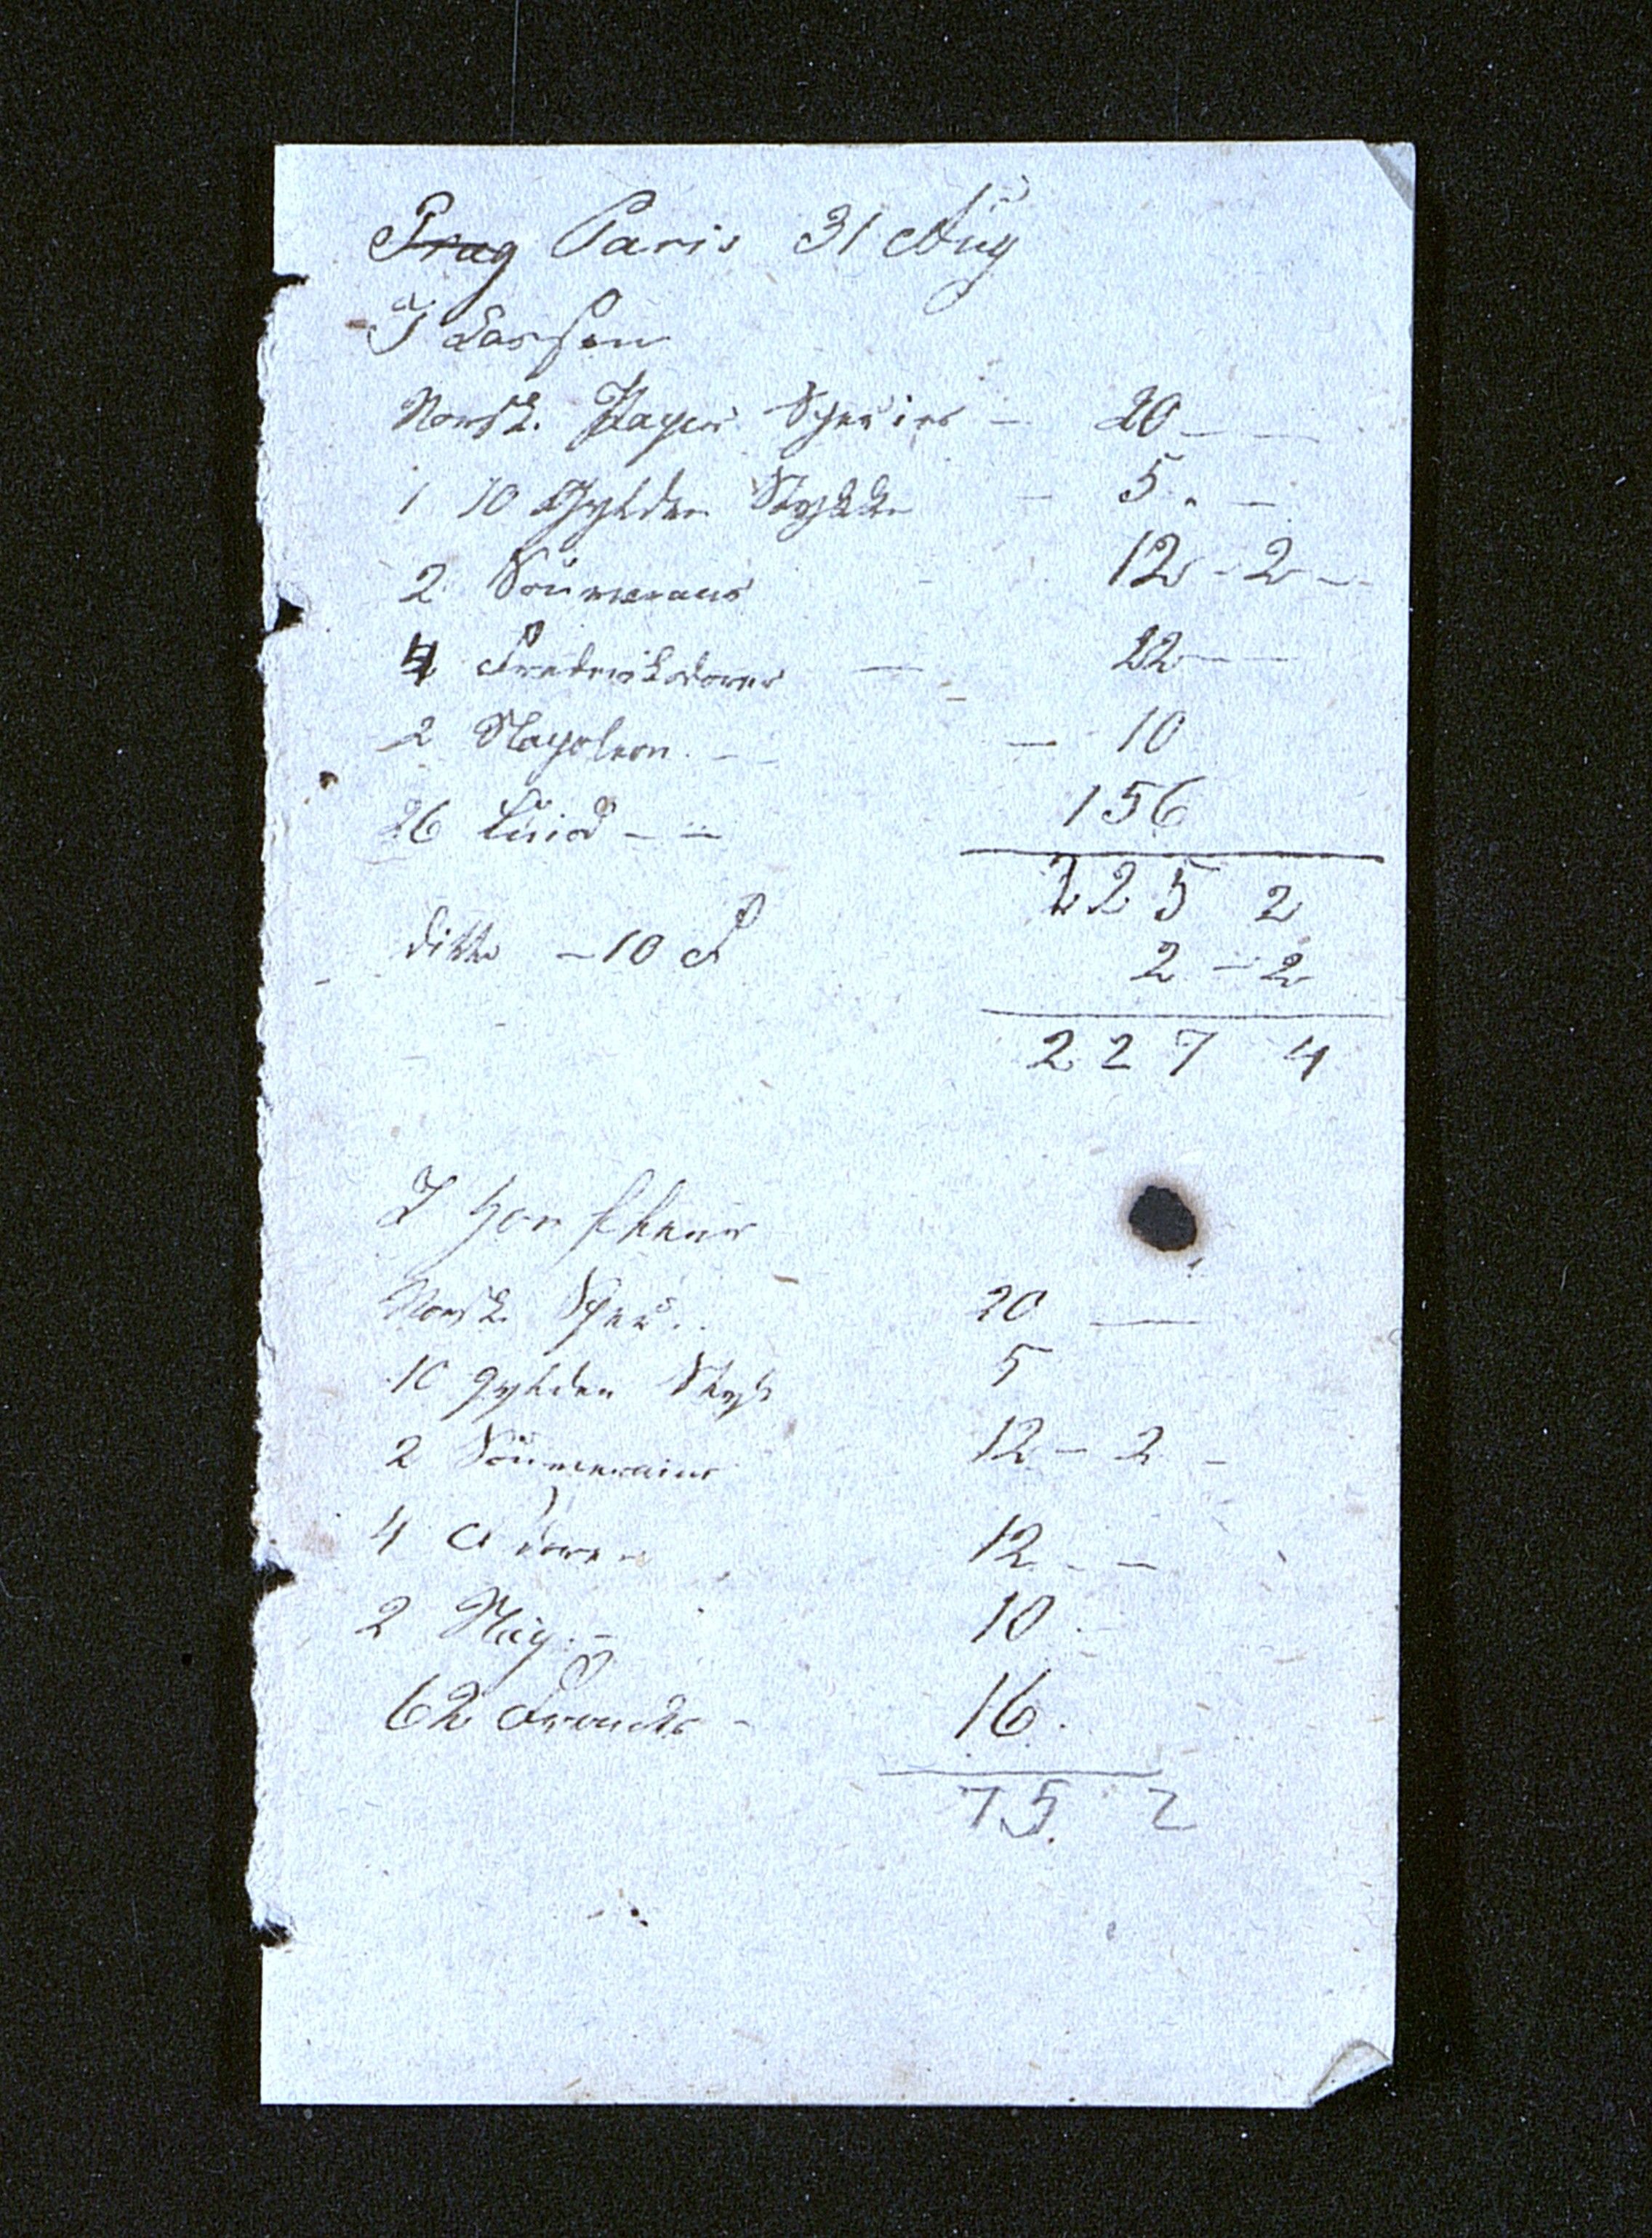 Prag Paris 31 Aug
I Kassen
Norsk. Papir Species - 20 - -
1 10 Gylden Stykke - 5 " -
2 Souverans 12 - 2 -
4 Frederiksdorer - 22 - -
2 Napoleon. - - 10
26 Luid - - 156
225 2
ditto - 10 F 2 - 2
227 4
I
Norsk. Spec.. 20 -
10 Gylden Styk 5
2 Souverainer 12 - 2 -
4 F dorer 12 - -
2 Nap. - 10 -
62 Francks - 16.
75 2